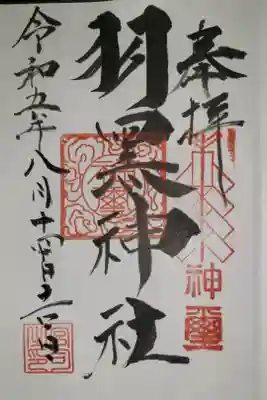 奉拝
神璽
羽黒神社
令和五年八月十